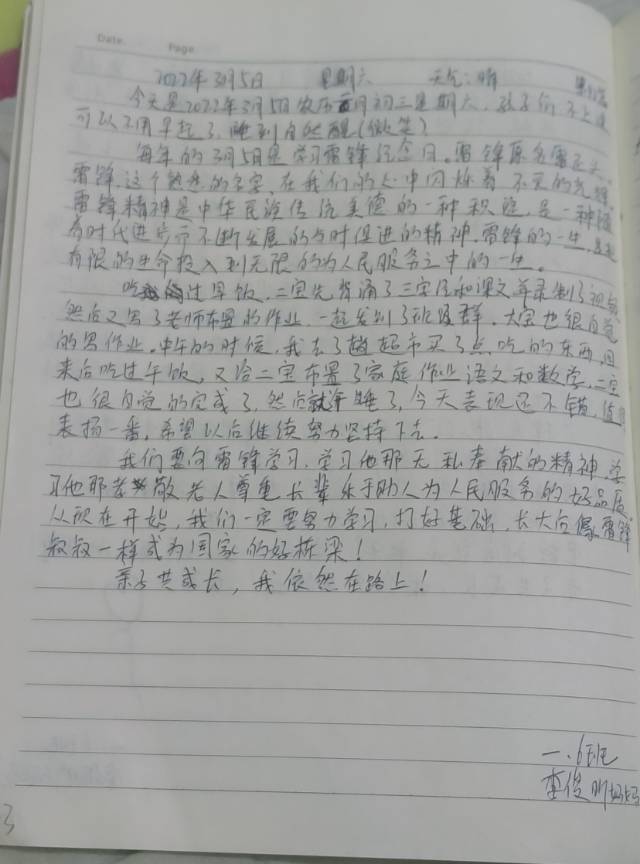 Date Page
2022年3月5日 星期六 天气：晴
今天是2022年3月5日农历二月初三星期六，孩子们不上课
可以不用早起了，睡到自然醒（微笑）
每年的3月5日是学习雷锋纪念日。雷锋原名雷正兴，
雷锋，这个熟悉的名字，在我们的心中闪烁着不灭的光辉，
雷锋精神是中华民族传统美德的一种积淀，是一种随
着时代进步而不断发展的与时俱进的精神，雷锋的一生，是把
有限的生命投入到无限的为人民服务之中的一生。
吃过早饭，二宝先背诵了三字经和课文并录制了视频
然后又写了老师布置的作业，一起发到了班级群，大宝也很自觉
的写作业。中午的时候，我去了趟超市买了点吃的东西，回
来后吃过午饭，又给二宝布置了家庭作业语文和数学，二宝
也很自觉的完成了，然后就午睡了，今天表现还不错，值得
表扬一番，希望以后继续努力坚持下去。
我们要向雷锋学习，学习他那无私奉献的精神，学
习他那孝敬老人尊重长辈乐于助人为人民服务的好品质，
从现在开始，我们一定要努力学习，打好基础，长大后像雷锋
叔叔一样成为国家的好栋梁！
亲子共成长，我依然在路上！
一.6班
李俊昕妈妈
3